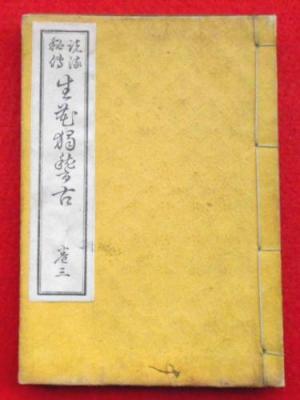 諸流
秘傳
生花獨稽古
巻三